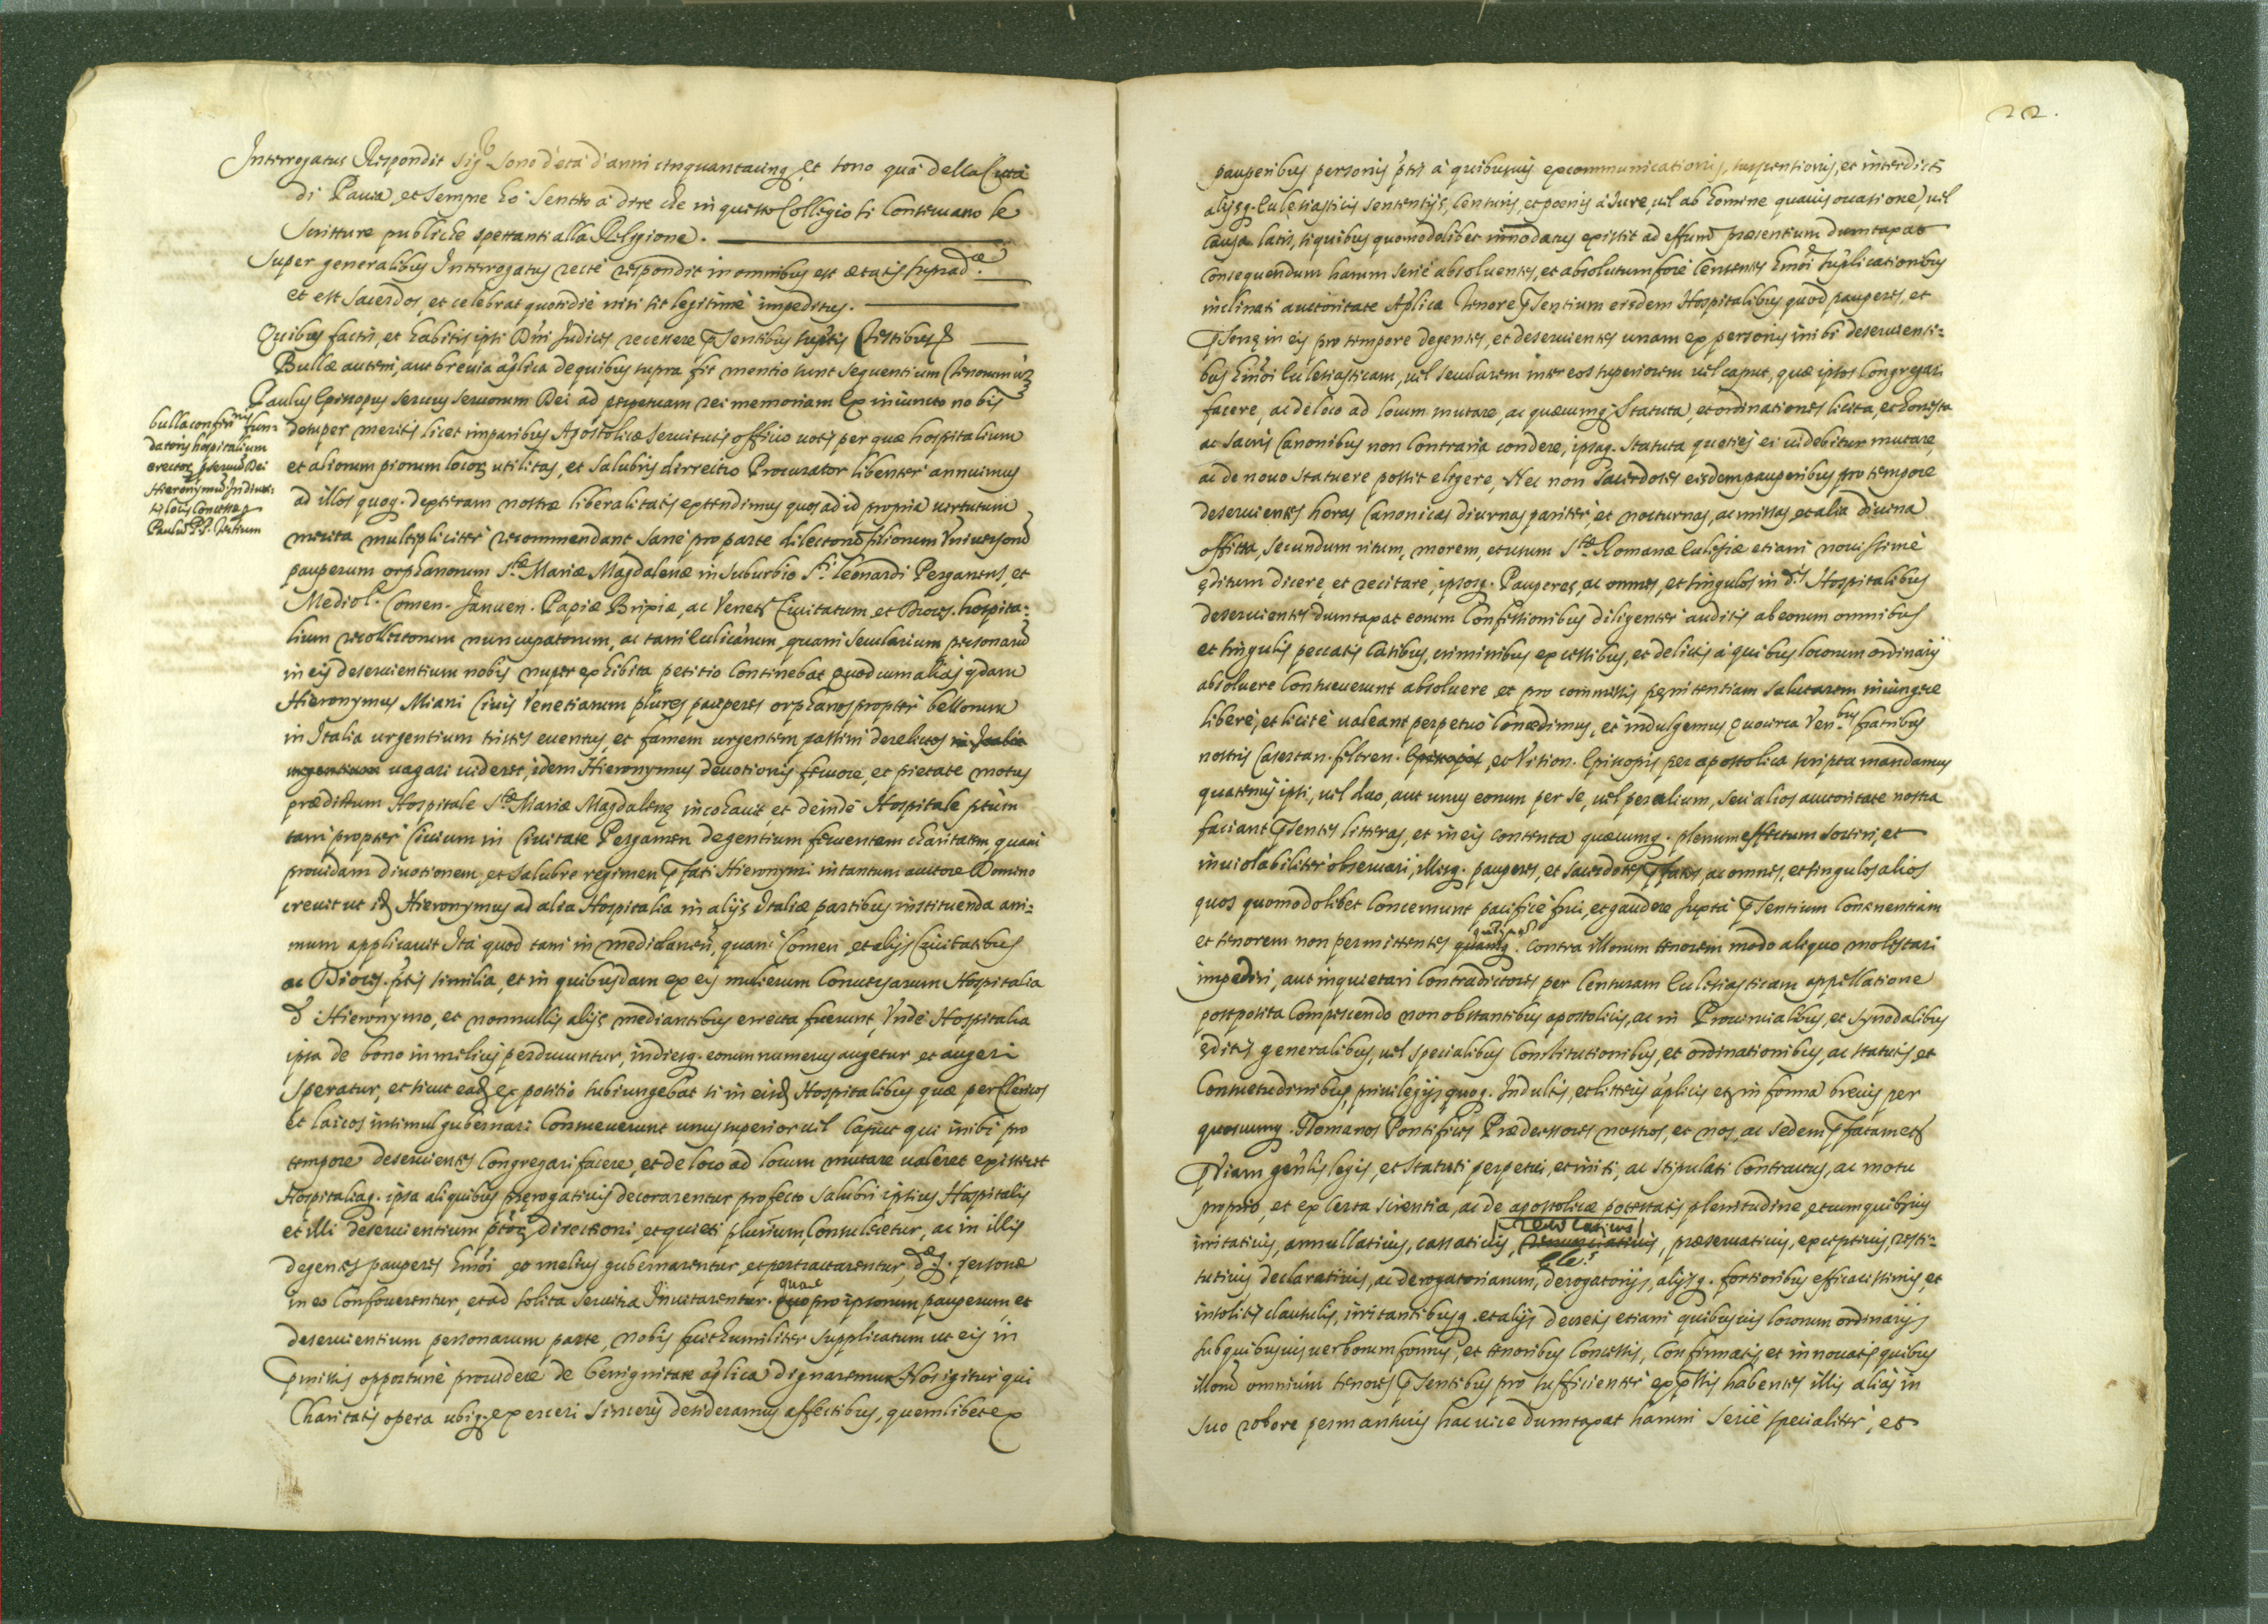 Interrogatus Respondit Sig.r sono d'età d'anni cinquantacinq, et sono quà della Città
di Pavia, et sempre hò sentito à dire che in questo Collegio si conservano le
scritture publiche spettanti alla Religione.
Super generalibus Interrogatus recte respondit in omnibus est ætatis suprad.æ
et est sacerdos, et celebrat quotidie nisi sit legitimè impeditus.
Quibus factis, et habitis ipsi Dñi Judices recessere pñsentibus supt̃is Testibus
Bullæ autem, aut brevia ap̃lica de quibus supra fit mentio sunt sequentium tenorum vz
Paulus Episcopus servus servorum Dei ad perpetuam rei memoriam Ex iniuncto nobis
bulla confirñis fun=
datoris hospitalium
erector pservũ Dei
Hieronymũ In diver:
sis locis concessa
Paulũ P.P. Tertium
desuper meritis licet imparibus Apostolicæ servitutis officio votis per quæ hospitalium
et aliorum piorum locoꝝ utilitas, et salubris dirrectio Procurator libenter annuimus
ad illos quoq. dexteram nostræ liberalitatis extendimus quos ad id propria virtutum
merita multipliciter recommendant sane pro parte dilectorũ filiorum Universorũ
pauperum orphanorum S.tæ Mariæ Magdalenæ in suburbio S.ti Leonardi Pergamens, et
Mediol. Comen. Januen. Papiæ Brixiæ, ac Venet. Civitatum, et Dioces. hospita:
lium recollectorum nuncupatorum, ac tam Ecclic̃arum, quam secularium personarũ
in eis deservientium nobis nuper exhibita petitio continebat quod cum alias qdam
Hieronymus Miani Civis Venetiarum plures pauperes orphanos propter bellorum
in Italia urgentium tristes eventus, et famem urgentem passim derelictos in Italia
urgentium vagari videret, idem Hieronymus devotionis fervore, et pietate motus
prædictum Hospitale S.tæ Mariæ Magdalenę incohavit et deinde Hospitale ptũm
tam propter Civium in Civitate Pergamen degentium ferventem charitatem, quam
providam divotionem, et salubre regimen pfati Hieronymi in tantum auctore Domino
crevit ut idẽ Hieronymus ad alia Hospitalia in alijs Italiæ partibus instituenda ani=
mum applicavit Ita quod tam in Mediolaneñ, quam Comen, et alijs Civitatibus
ac Dioces. ptis similia, et in quibusdam ex eis mulierum Conversarum Hospitalia
d. Hieronymo, et nonnullis alijs mediantibus errecta fuerunt, Unde Hospitalia
ipsa de bono in melius perducuntur, indiesq. eorum numerus augetur et augeri
speratur, et sicut eadẽ expositio subiungebat si in eisdẽ Hospitalibus quæ per Clericos
et laicos insimul gubernari consueverunt unus superior vel Caput qui inibi pro
tempore deservientes Congregari facere, et de loco ad locum mutare valeret existeret
Hospitaliaq. ipsa aliquibus prerogativis decorarentur profecto salubri ipsius Hospitalis
et illi deservientium ptorꝝ directioni, et quieti plurium Consuleretur, ac in illis
degentes pauperes hmõi eo melius gubernarentur, et pertractarentur, dæq. personæ
quare
in eo confoverentur, et ad solita servitia Invitarentur. quo pro ipsorum pauperum, et
deservientium personarum parte, nobis fuit humiliter supplicatum ut eis in
pmissis opportunè providere de benignitate ap̃lica dignaremur Nos igitur qui
Charitatis opera ubiq. exerceri sinceris desideramus affectibus, quemlibet ex
22.
pauperibus personis ptis à quibusvis excommunicationis, suspensionis, et interdicti
alijsq. Eclesiasticis sententijs, censuris, et pœnis à Jure, vel ab homine quavis occasione, vel
causa latis, si quibus quomodolibet innodatus existit ad effum præsentium dumtaxat
consequendum harum serie absolventes, et absolutum fore censentes hmõi suplicationibus
inclinati auctoritate Ap̃lica tenore pñsentium eisdem Hospitalibus quod pauperes, et
psonę in eis pro tempore degentes, et deservientes unam ex personis inibi deservienti=
bus hmõi Ecclesiasticam, vel secularem inter eos superiorem vel caput, quæ ipsos Congregari
facere, ac de loco ad locum mutare, ac quæcumq. statuta, et ordinationes licita, et honesta
ac sacris Canonibus non contraria condere, ipsaq. statuta quoties ei videbitur mutare,
ac de novo statuere possit eligere, Nec non sacerdotes eisdem pauperibus pro tempore
deservientes horas Canonicas diurnas pariter, et nocturnas, ac missas, et alia divina
offitia, secundum ritum, morem, et usum S.tæ Romanæ Eclesiæ etiam novissime
ęditum dicere, et recitare, ipsosq. Pauperes, ac omnes, et singulos in d.is Hospitalibus
deservientes dumtaxat eorum Confessionibus diligenter auditis ab eorum omnibus
et singulis peccatis casibus, criminibus excessibus, et delictis à quibus locorum ordinarij
absolvere consueverunt absolvere et pro commissis pęnitentiam salutarem iniungere
liberè, et licitè valeant perpetuò Concedimus, et indulgemus Quocirca Ven.bus fratribus
nostris Casertan. feltren. Episcopis, et Vition. Episcopis per apostolica scripta mandamus
quattenus ipsi, vel duo, aut unus eorum per se, vel per alium, seu alios auctoritate nostra
faciant pñsentes litteras, et in eis contenta quæcumq. plenum effectum sortiri, et
inviolabiliter observari, illosq. pauperes, et sacerdotes pfatos, ac omnes, et singulos alios
quos quomodolibet concernunt pacificè frui, et gaudere Juxta pñsentium continentiam
et tenorem non permittentes quamq. contra illorum tenorem modo aliquo molestari
impediri, aut inquietari Contradictores per Censuram Eclesiasticam appellatione
postposita Compescendo non obstantibus apostolicis, ac in Provincialibus, et synodalibus
ęditis generalibus, vel specialibus Constitutionibus, et ordinationibus, ac statutis, et
Consuetudinibus, privilegijs quoq. Indultis, et litteris ap̃licis etz in forma brevis per
quoscumq. Romanos Pontifices Prædecessores nostros, et nos, ac sedem pfatam etz
p viam geñlis legis, et statuti perpetui, et initi, ac stipulati Contractus, ac motu
proprio, et ex certa scientia, ac de apostolicæ potestatis plenitudine, et cum quibusvis
revocativis
irritativis, annullativis, cassativis, renunciativis, præservativis, exceptivis, resti=
tutivis declarativis, ac derogatoriarum, derogatorijs, alijsq. fortioribus efficacissimis, et
insolitis clausulis, irritantibusq. et alijs decretis etiam quibusvis locorum ordinarijs
sub quibusvis verborum formis, et tenoribus Concessis, Confirmatis, et innovatis quibus
illorũ omnium tenores pñsentibus pro sufficienter expssis habentes illis alias in
suo robore permansuris hac vice dumtaxat harum serie specialiter, et